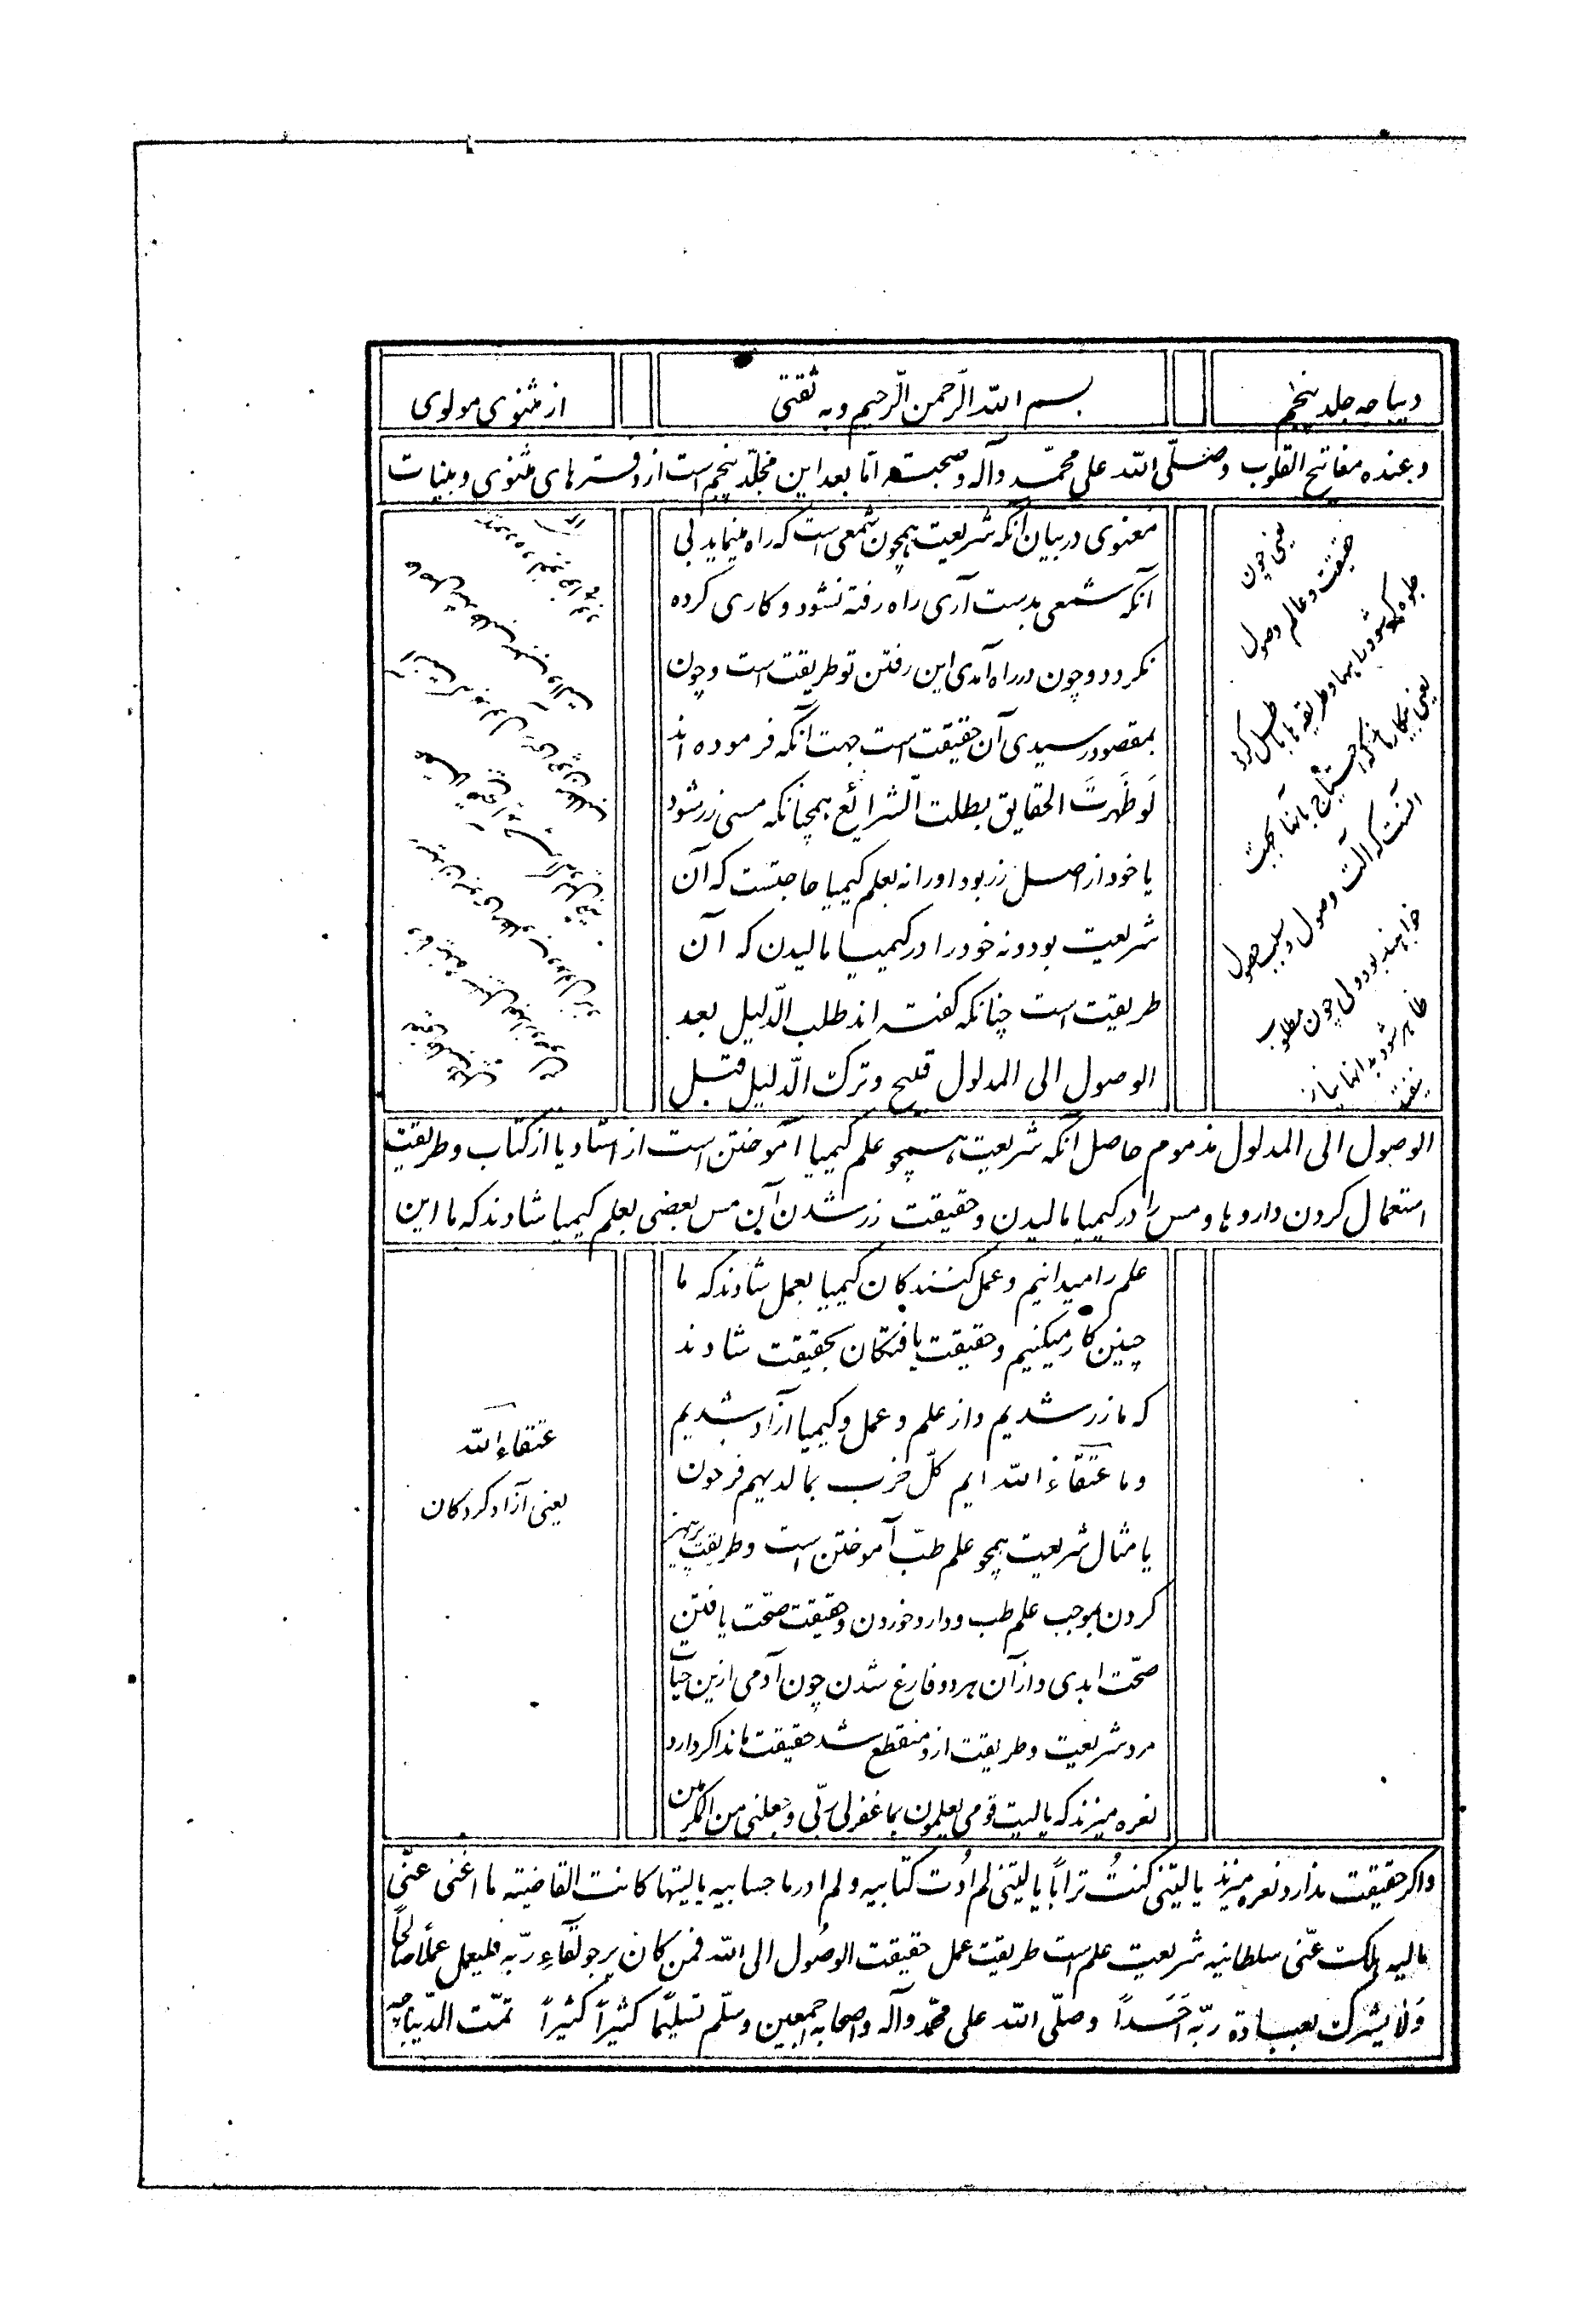 دیباجه جلد پنجم
بسم الله الرّحمن الرّحیم و به ثقتی
از مثنوی مولوی
و عنده مفاتیح القلوب و صلّی الله علی محمّد و آله و صحبه امّا بعد این مجلّد پنجم است از دفترهای مثنوی و بینات
معنوی در بیان آنکه شریعت همچون شمعی است که راه مینماید بی
آنکه شمعی بدست آری راه رفته نشود و کاری کرده
نکردد و چون در راه آمدی این رفتن تو طریقت است و چون
بمقصود رسیدی آن حقیقت است جهت آنکه فرموده اند
لَو ظَهرتَ الحقایق بطلت الشّرائع همچنانکه مسی زر شود
یا خود از اصل زر بود او را نه بعلم کیمیا حاجتست که آن
شریعت بود و نه خود را در کیمیا مالیدن که آن
طریقیت است چنانکه کفته اند طلب الدّلیل بعد
الوصول الی المدلول قبیح و ترک الدّلیل قبل
یعنی چون
حقیقت و عالم وصول
جلوه کر شود راهها و طریقه ها باطل کردد
یعنی بیکار ماند که احتیاج بآنها بجهت
آنست که آلت وصول و سبب حصول
خواهند بود ولی چون مطلوب
ظاهر شود بدانها نیاز
نیفتد
الوصول الی المدلول مذموم حاصل آنکه شریعت همچو علم کیمیا آموختن است از استاد یا از کتاب و طریقت
استعمال کردن داروها و مس را در کیمیا مالیدن و حقیقت زر شدن آن مس بعضی بعلم کیمیا شادند که ما این
علم را میدانیم و عمل کنندکان کیمیا بعمل شادند که ما
چنین کار میکنیم و حقیقت یافتکان بحقیقت شادند
که ما زر شدیم و از علم و عمل و کیمیا آزاد شدیم
و ما عتقاء الله ایم کلّ حزب بما لدیهم فرحون
یا مثال شریعت همچو علم طبّ آموختن است و طریقت پرهیز
کردن بموجب علم طب و دارو خوردن و حقیقت صحّت یافتن
صحّت ابدی و از آن هر دو فارغ شدن چون آدمی ازین حیات
مرد شریعت و طریقت ازو منقطع شد حقیقت ماند اکر دارد
نعره میزند که یا لیت قومی یعلمون بما غفر لی ربّی و جعلنی من المکرمین
عتقاء الله
یعنی آزاد کردکان
و اکر حقیقت ندارد نعره میزند یا لیتنی کنتُ تراباً یا لیتنی لم اُوت کتابیه و لم ادر ما حسابیه یا لیتها کانت القاضیته ما اغنی عنّی
مالیه هلک عنّی سلطانیه شریعت علم است طریقت عمل حقیقت الوصُول الی الله فمن کان یرجو لقآءِ ربّه فلیعمل عملاً صالحاً
وَلا یشرک بعبادة ربّه اَحَداً و صلّی الله علی محمّد و آله و اصحابه اجمعین و سلّم تسلیماً کثیراً کثیراً تمّت الدّیباجه